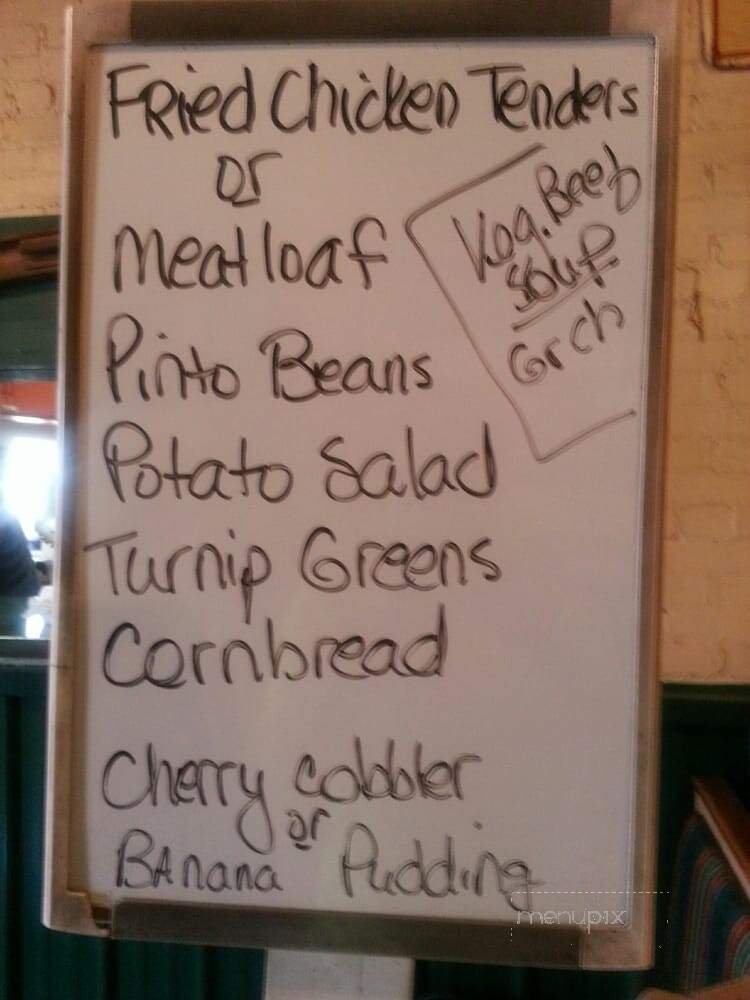 Fried Chicken Tenders
or
Meatloaf
Veg. Beef
Soup
Gr ch
Pinto Beans
Potato Salad
Turnip Greens
Cornbread
Cherry Cobbler
or
Banana Pudding
menupix